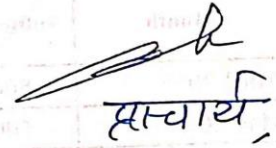 प्राचार्य,